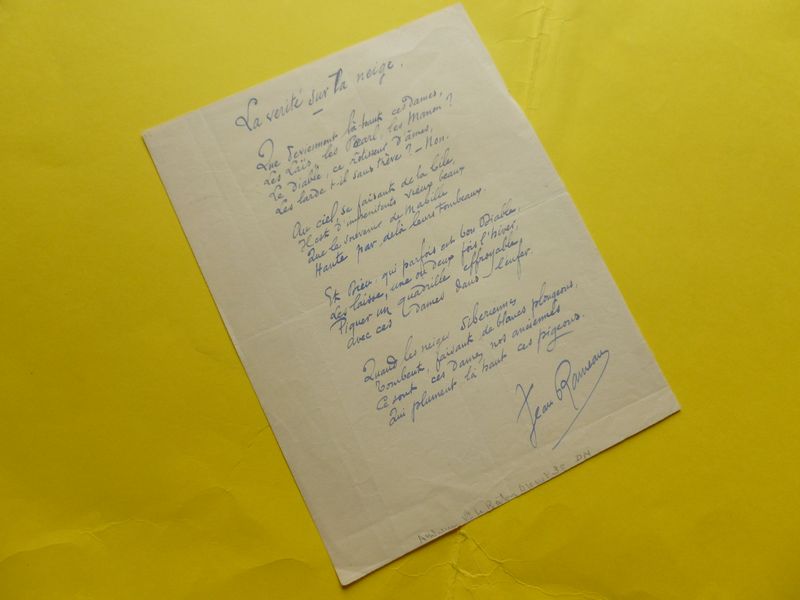 La verité sur la neige.
Que deviennent là-haut ces Dames,
Les Laïs, les Pearl, les Manon ?
Le Diable, ce rôtisseur d'âmes,
Les larde t-il sans trêve ? – Non.
Au ciel, se faisant de la bile,
Il est d'impénitents vieux beaux
Que le souvenir de Mabille
Hante par delà leurs tombeaux.
Et Dieu, qui parfois est bon Diable,
Les laisse, une ou deux fois l'hiver,
Piquer un quadrille effroyable
Avec ces Dames dans l'enfer.
Quand les neiges siberiennes
Tombent, faisant de blancs plongeons,
Ce sont ces Dames, nos anciennes
Qui plument là haut ces pigeons.
Jean Rameau